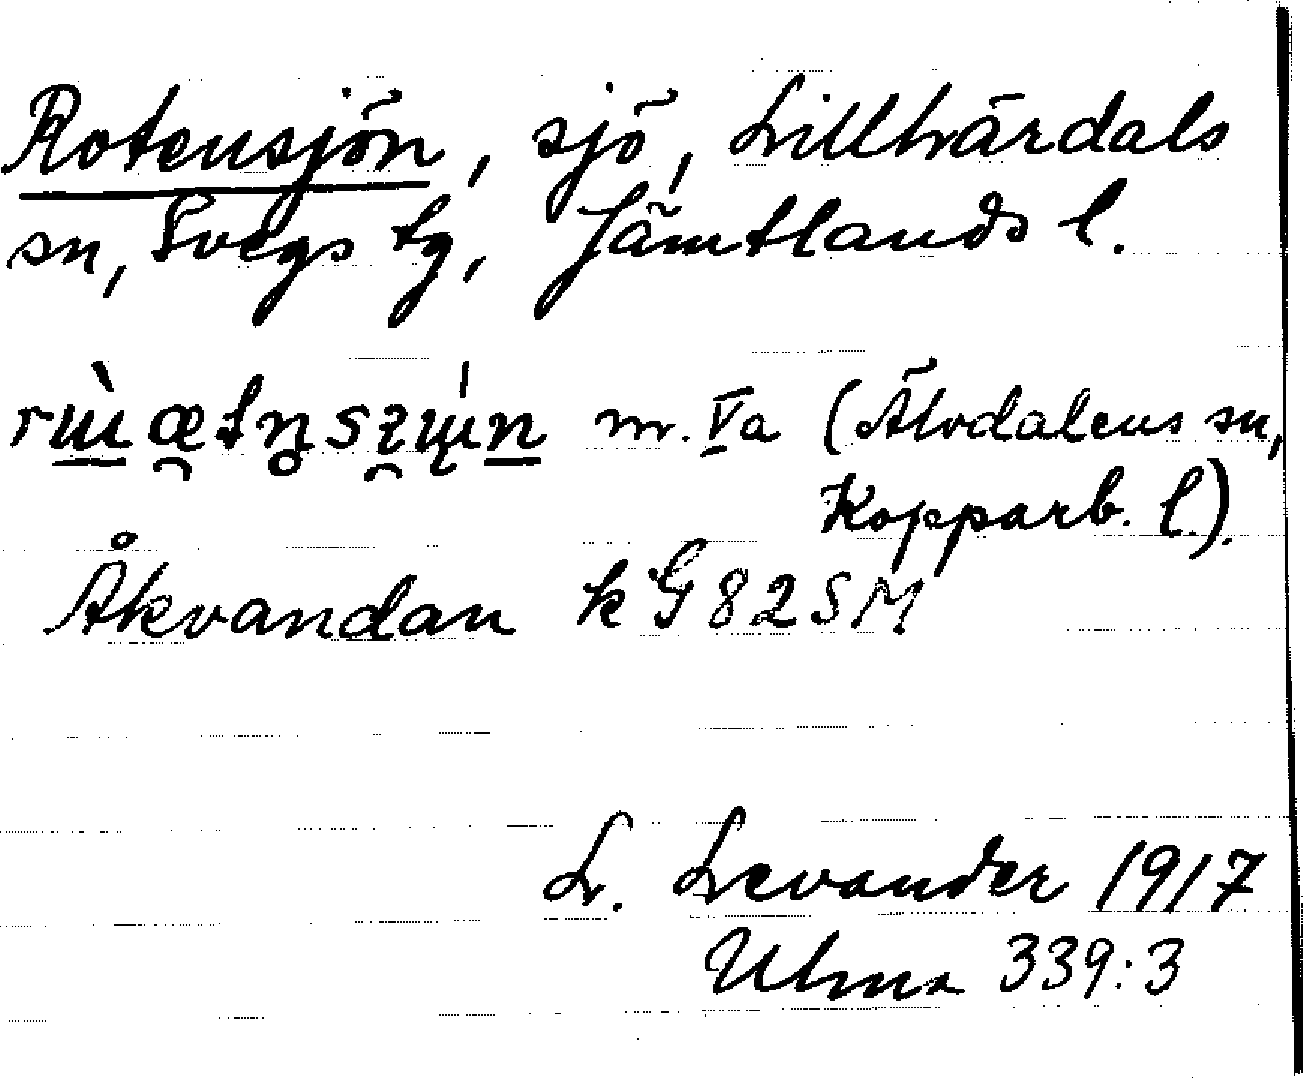 Rotensjön, sjö, Lillhärdals
sn, Svegs tg, Jämtlands l.
m. Va (Älvdalens sn,
Kopparb. l.).
Åkvandan k G 82 SM
L. Levander 1917
Ulma 339:3